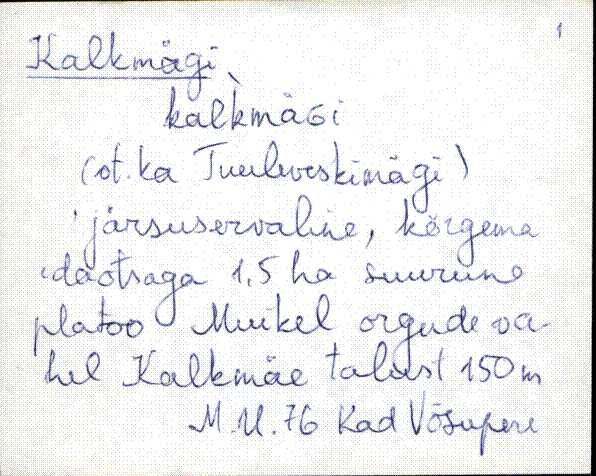 1
Kalkmägi
kalk̀mäGi
(ot. ka Tuuleveskimägi)
järsuservaline, kõrgema
idaotsaga 1,5 ha suurune
platoo Muikel orgude va-
hel Kalkmäe talust 150 m
M.U. 76 Kad Võsupere